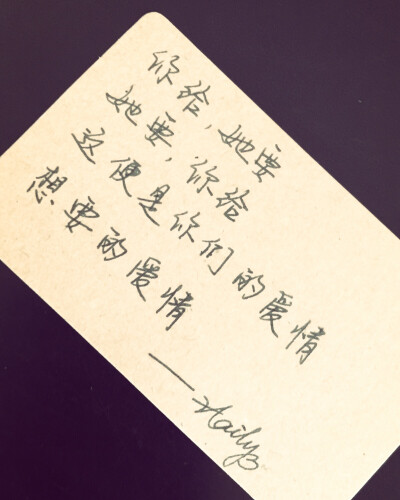 你给，她要
她要，你给
这便是你们的爱情
想要的爱情
——Haily3